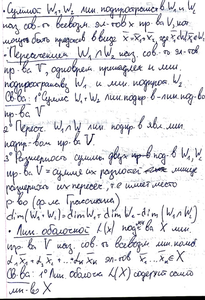 • Суммой W₁+W₂ лин. подпространств W₁ и W₂
наз. сов-ть всевозм. эл-тов x пр-ва V, кот.
могут быть предст. в виде x̄=x̄₁+x̄₂, где x̄₁∈W₁ x̄₂∈W₂
• Пересечением W₁∩W₂ наз. сов-ть эл-тов
пр-ва V, одноврем. принадлеж. и лин.
подпростр. W₁ и лин. подпростр. W₂
Св-ва: 1° Сумма W₁+W₂ лин. подпр-в - лин. подпр-во
пр-ва V
2° Перес. W₁∩W₂ лин. подпр-в явл. лин.
подпр-вом пр-ва V
3° Размерность суммы двух подпр-в W₁, W₂
пр-ва V = сумме их размерностей
размерность их пересеч., т.е. имеет место
р-во (ф-ла Грассмана)
dim(W₁+W₂)=dimW₁+dimW₂-dim(W₁∩W₂)
• Лин. оболочкой L(X) подмн-ва X лин.
пр-ва V наз. сов-ть всевозм. лин. комб.
α₁x̄₁+α₂x̄₂+...+αₖx̄ₖ эл-тов X
Св-ва: 1° Лин. оболочка L(X) содержит само
мн-во X